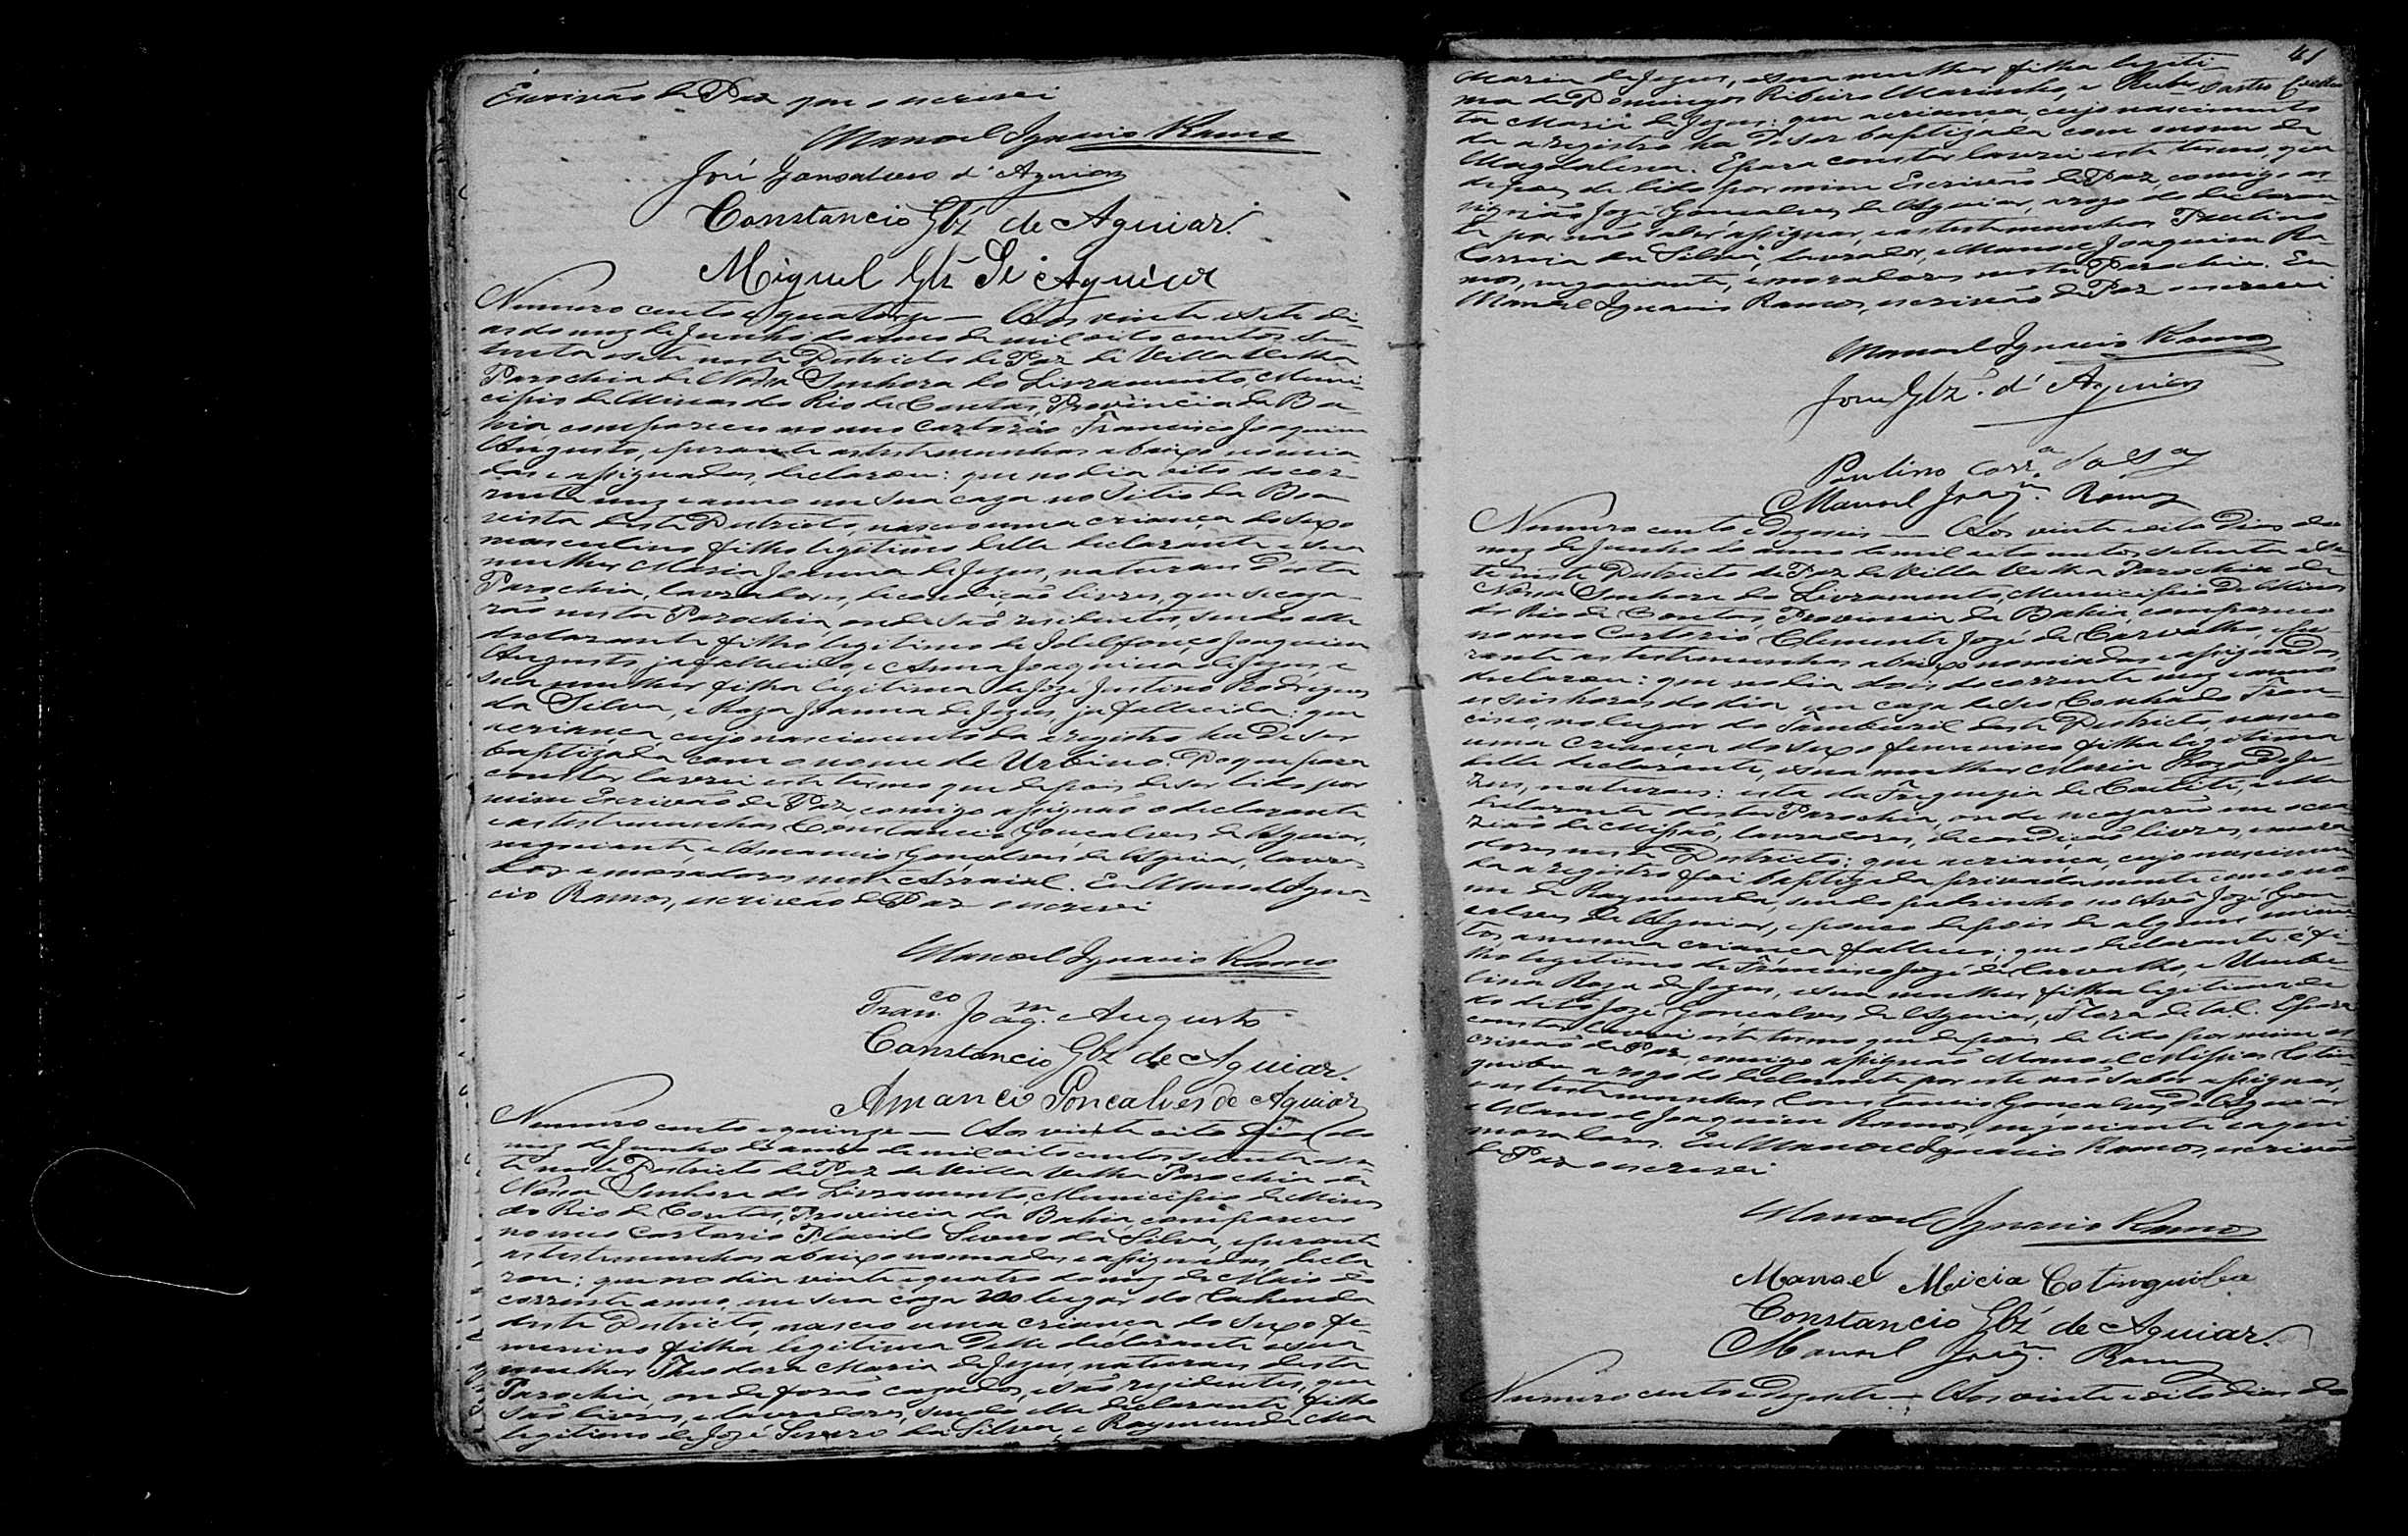 Escrivão de Paz que o escrevi
Manoel Ignacio Ramos
José Gonsalves d'Aguiar
Constancio Glz de Aguiar.
Miguel Glz de Aguiar
Numero cento e quatorze — Aos vinte e sete di-
as do mez de Junho do anno de mil oito centos se-
tenta e sete neste Districto de Paz de Villa Velha
Parochia de Nossa Senhora do Livramento, Muni-
cipio de Minas do Rio de Contas, Provincia da Ba-
hia compareceo no meo Cartorio Francisco Joaquim
Augusto, e perante as testemunhas abaixo nomia-
das e assignadas, declarou: que no dia oito do cor-
rente mez e anno em sua caza no Sitio da Boa
vista deste Districto, nasceo uma criança do sexo
masculino filho legitimo delle declarante e sua
mulher Maria Joanna de Jezus, naturaes desta
Parochia, lavradores, de condição livres, que se caza-
rão nesta Parochia, onde são residentes, sendo elle
declarante filho legitimo de Idelfonço Joaquim
Augusto, ja fallecido, e Anna Joaquina de Jezus, e
sua mulher filha legitima de Jozé Justino Rodrigues
da Silva, e Roza Joanna de Jezus, ja fallecida: que
a criança cujo nascimento da a registro ha de ser
baptizada com o nome de Urbino. Do que para
constar lavrei este termo que depois de ser lido por
mim Escrivão de Paz, comigo assignão o declarante
e as testemunhas Constancio Gonçalves de Aguiar,
negociante, e Amancio Gonçalves de Aguiar, lavra-
dor e moradores neste Arraial. Eu Manoel Igna-
cio Ramos, escrivão de Paz o escrevi
Manoel Ignacio Ramos
Fran.co Joaq.m Augusto
Constancio Glz de Aguiar.
Amancio Gonçalves de Aguiar
Numero cento e quinze — Aos vinte oito dias do
mez de Junho do anno de mil oito centos setenta e se-
te neste Districto de Paz de Villa Velha Parochia de
Nossa Senhora do Livramento, Municipio de Minas
do Rio de Contas, Provincia da Bahia, compareceo
no meo Cartorio Placido Severo da Silva, e perante
as testemunhas abaixo nomiadas e assignadas, decla-
rou: que no dia vinte e quatro do mez de Maio do
corrente anno, em sua caza no lugar do
deste Districto, nasceo uma criança do sexo fe-
menino filha legitima delle declarante e sua
mulher Theodora Maria de Jezus, naturaes desta
Parochia, onde forão cazados, e são rezidentes, que
são livres, e lavradores, sendo elle declarante filho
legitimo de Jozé Severo da Silva, e Raymunda Ma
41
Maria de Jezus, e sua mulher filha legiti-
ma de Domingos Ribeiro Marinho, e
Maria de Jezus: que a criança, cujo nascimento
da a registro ha de ser baptizada com o nome de
Magdalena. E para constar lavrei este termo, que
depois de lido por mim Escrivão de Paz, comigo as-
signão Jozé Gonçalves de Aguiar, a rogo do declaran-
te por não saber assignar, e as testemunhas Paulino
Correia da Silva, lavrador, e Manoel Joaquim Ra-
mos, negociante, e moradores nesta Parochia. Eu
Manoel Ignacio Ramos, escrivão de Paz o escrevi
Manoel Ignacio Ramos
Jose Glz. d'Aguiar
Paulino Corr.a da S.a
Manoel Joaq.m Ramos
Numero cento e dezeseis — Aos vinte e oito dias do
mez de Junho do anno de mil oito centos setenta e se-
te neste Districto de Paz de Villa Velha Parochia de
Nossa Senhora do Livramento, Municipio de Minas
do Rio de Contas, Provincia da Bahia, compareceo
no meo Cartorio Clemente Jozé de Carvalho, e pe-
rante as testemunhas abaixo nomiadas e assignadas,
declarou: que no dia dois do corrente mez e anno
as seis horas do dia em caza de seo Cunhado Fran-
cisco, no lugar do Tamburil deste Districto, nasceo
uma criança do sexo femenino filha legitima
delle declarante, e sua mulher Maria Roza de Je-
zus, naturaes: esta da Freguezia de Caetité, e elle
declarante desta Parochia, onde se cazarão em
de Missão, lavradores, de condição livres, e mora-
dores neste Districto: que a criança, cujo nascimento
da a registro foi baptizada privadamente com o no-
me de Raymunda, sendo padrinho seo Avô Jozé Gon-
çalves de Aguiar, e pouco depois de alguns minu-
tos, a mesma criança falleceo; que o declarante é fi-
lho legitimo de Francisco Jozé de Carvalho, e Umbe-
lina Roza de Jezus, e sua mulher filha legitima de
do dito Jozé Gonçalves de Aguiar, e Flora de tal. E para
constar lavrei este termo que depois de lido por mim es-
crivão de Paz, comigo assignão Manoel Missias Cotin-
guiba a rogo do declarante por este não saber assignar,
e as testemunhas Constancio Gonçalves de Aguiar
e Manoel Joaquim Ramos, negociante e aqui
moradores. Eu Manoel Ignacio Ramos, escrivão
de Paz o escrevi
Manoel Ignacio Ramos
Manoel Micia Cotinguiba
Constancio Glz de Aguiar.
Manoel Joaq.m Ramos
Numero cento e dezesete — Aos vinte e oito dias do